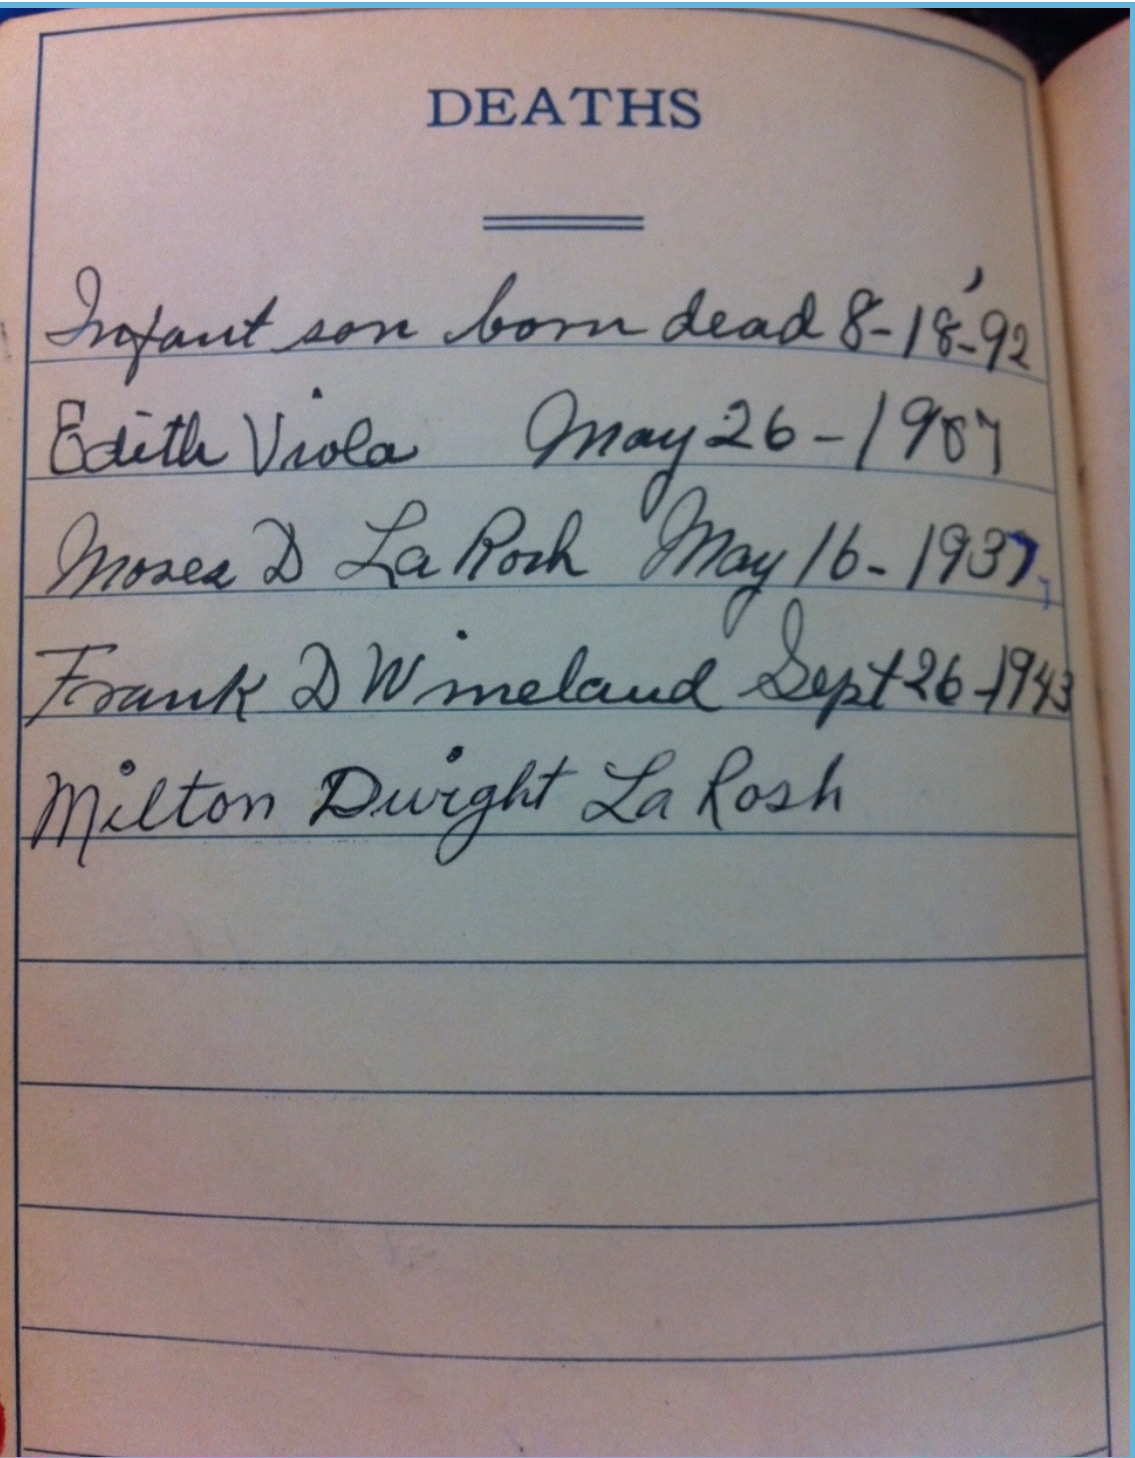 DEATHS
Infant son born dead 8-18-'92
Edith Viola May 26-1907
Moses D La Rosh May 16-1937
Frank D Wineland Sept 26-1943
Milton Dwight La Rosh